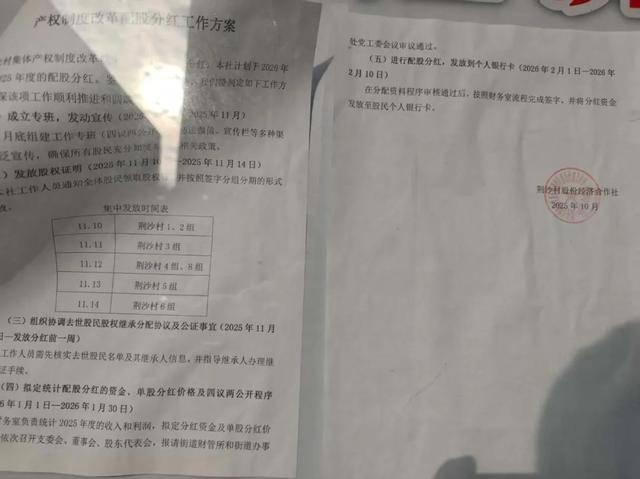 产权制度改革配股分红工作方案
村集体产权制度改革 分红，本社计划于2026年
025年度的配股分红。 我们暂制定如下工作方
保该项工作顺利推进和圆
）成立专班，发动宣传 2025年11月）
月底组建工作专班（四议两公 宣传栏等多种渠
泛宣传，确保所有股民充分知 相关政策。
）发放股权证明（2025年11月10 2025年11月14日）
本社工作人员通知全体股民领取股权 并按照签字分组分期的形式
集中发放时间表
11.10 荆沙村1、2组
11.11 荆沙村3组
11.12 荆沙村4组、8组
11.13 荆沙村5组
11.14 荆沙村6组
（三）组织协调去世股民股权继承分配协议及公证事宜（2025年11月
日—发放分红前一周）
工作人员需先核实去世股民名单及其继承人信息，并指导继承人办理继
证手续。
（四）拟定统计配股分红的资金、单股分红价格及四议两公开程序
6年1月1日—2026年1月30日）
务室负责统计2025年度的收入和利润，拟定分红资金及单股分红价
依次召开支委会、董事会、股东代表会，报请街道财管所和街道办事
处党工委会议审议通过。
（五）进行配股分红，发放到个人银行卡（2026年2月1日—2026年
2月10日）
在分配资料程序审核通过后，按照财务室流程完成签字，并将分红资金
发放至股民个人银行卡。
荆沙村股份经济合作社
2025年10月